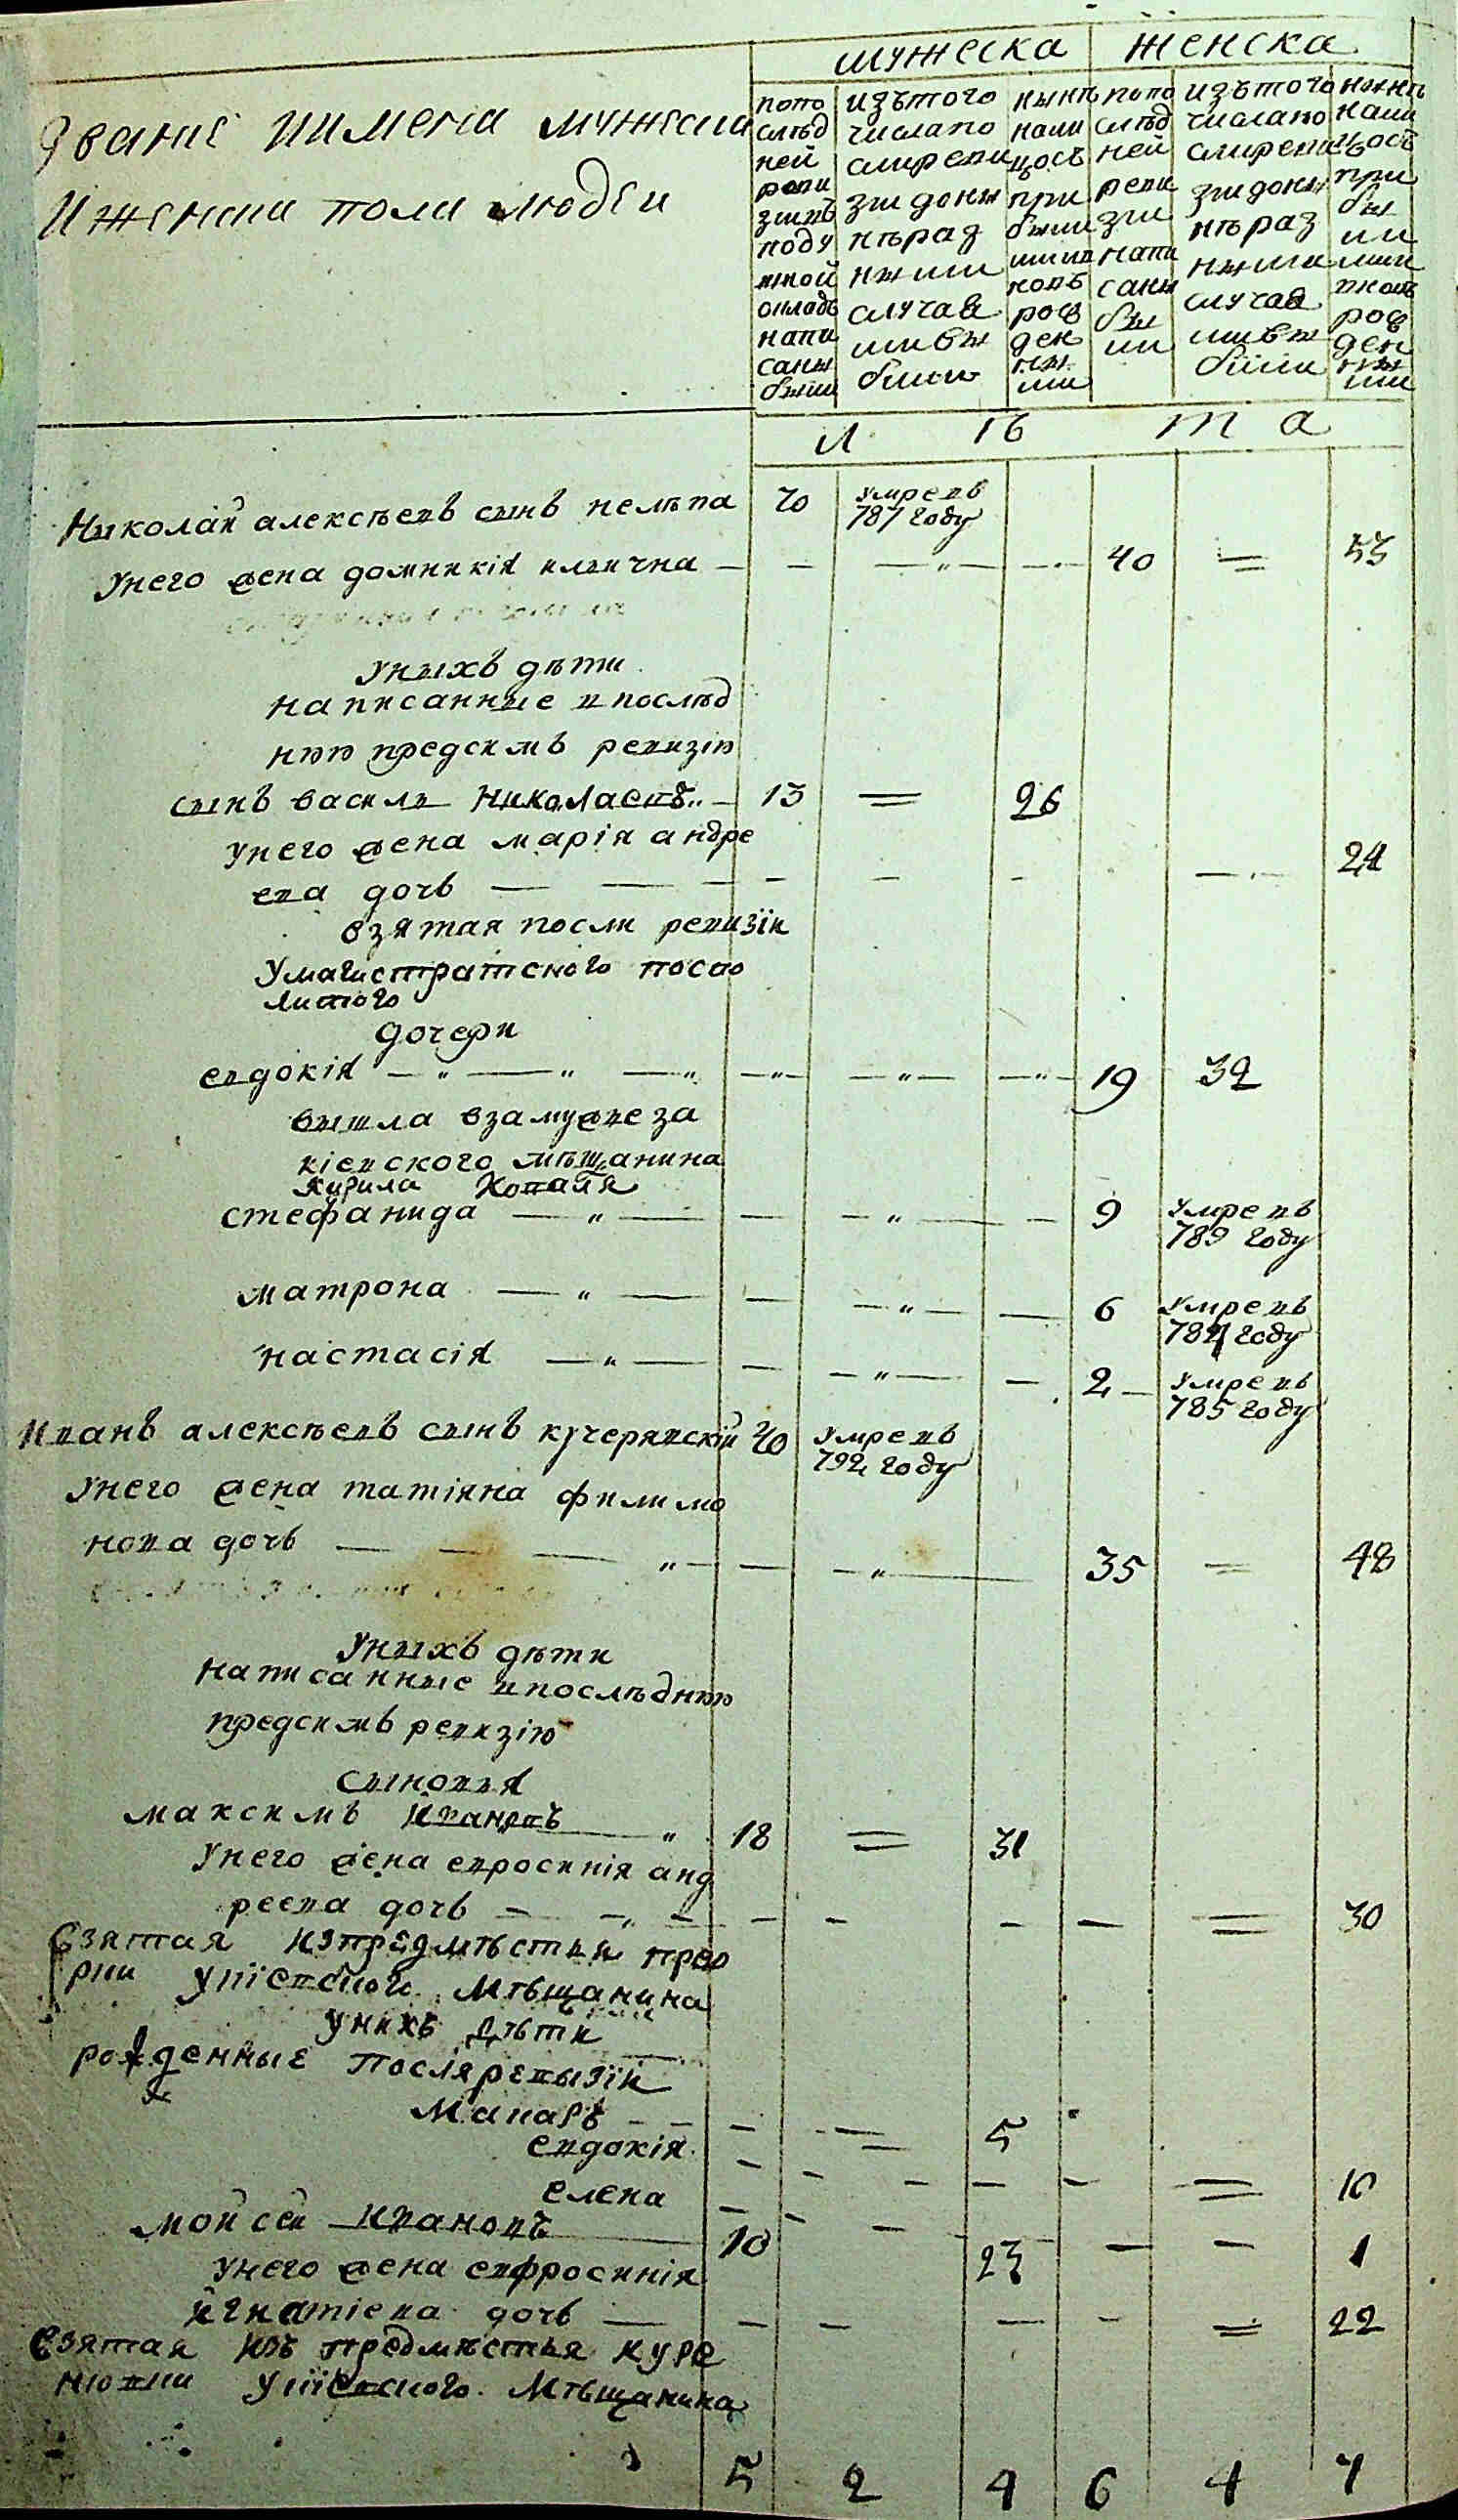 мужеска женска
Званіе иимена мужеска
Иженска пола людеи
попо слѣд ней реви зіивъ поду шной окладъ напи саны были
изътого числапо слирени зіидоны нѣраз ными случая мивы были
нынѣ нали цось при былими ивнов рож ден ны ми
попо слѣд ней реви зіи напи саны бы ли
изътого числапо слирени зіидоны нѣраз ными случая мивы были
нынѣ нали цось при бы ли ми вновь рож ден ны ми
л ѣ т а
Николай алексѣевъ сынъ нелѣпа 70 умревъ 787 году
Унего жена домникія илвична — — — — 40 = 53
Уныхъ дѣти
написанные впослѣд
нюю предсимъ ревизію
сынъ василь Николаевъ — 13 = 26
унего жена марія андре
ева дочь — — — — — — — 24
взятая посли ревизіи
Умагистратского поспо
литого
дочери
евдокія — — — — — — 19 32
вышла взамужнеза
кіевского мѣщанина
Кирила Копаля
стефанида — — — — — 9 умревъ 789 году
матрона — — — — — 6 умревъ 784 году
настасія — — — — — 2 — умревъ 785 году
Иванъ алексѣевъ сынъ кучерявскій 70 умревъ 792 году
Унего жена татіяна филимо
нова дочь — — — — — — 35 = 48
Уныхъ дѣти
написанные впослѣднюю
предсимъ ревизію
сыновья
максимъ Ивановъ 18 = 31
Унего жена евросинія анд
реева дочь — — — — — — — = 30
Взятая изпредмѣстия прео
рки укіевского мѣщанина
унихъ дѣти
рожденные Послѣревызіи
Макаръ — — — = 5
евдокія — — — — — = 10
елена — — — — — 1
мойсей Ивановъ 10 23
унего жена евфросинія
игнатіева дочь — — — — — = 22
Взятая изъ предмѣстья куре
ньовки укіевского мѣщанина
5 2 4 6 4 7